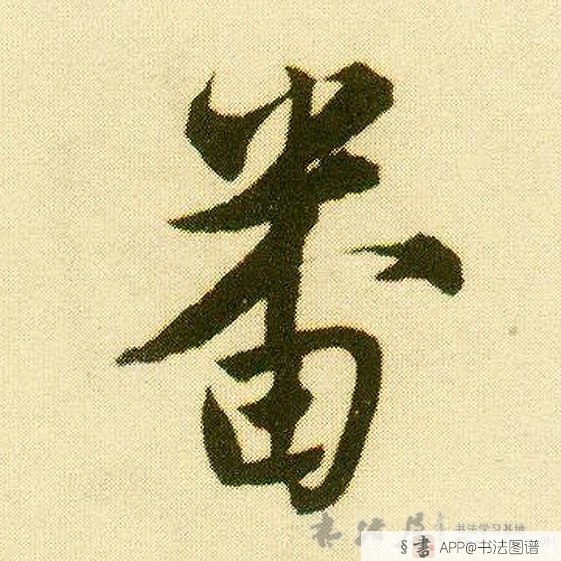 番
书法学习基地
§書 APP@书法图谱